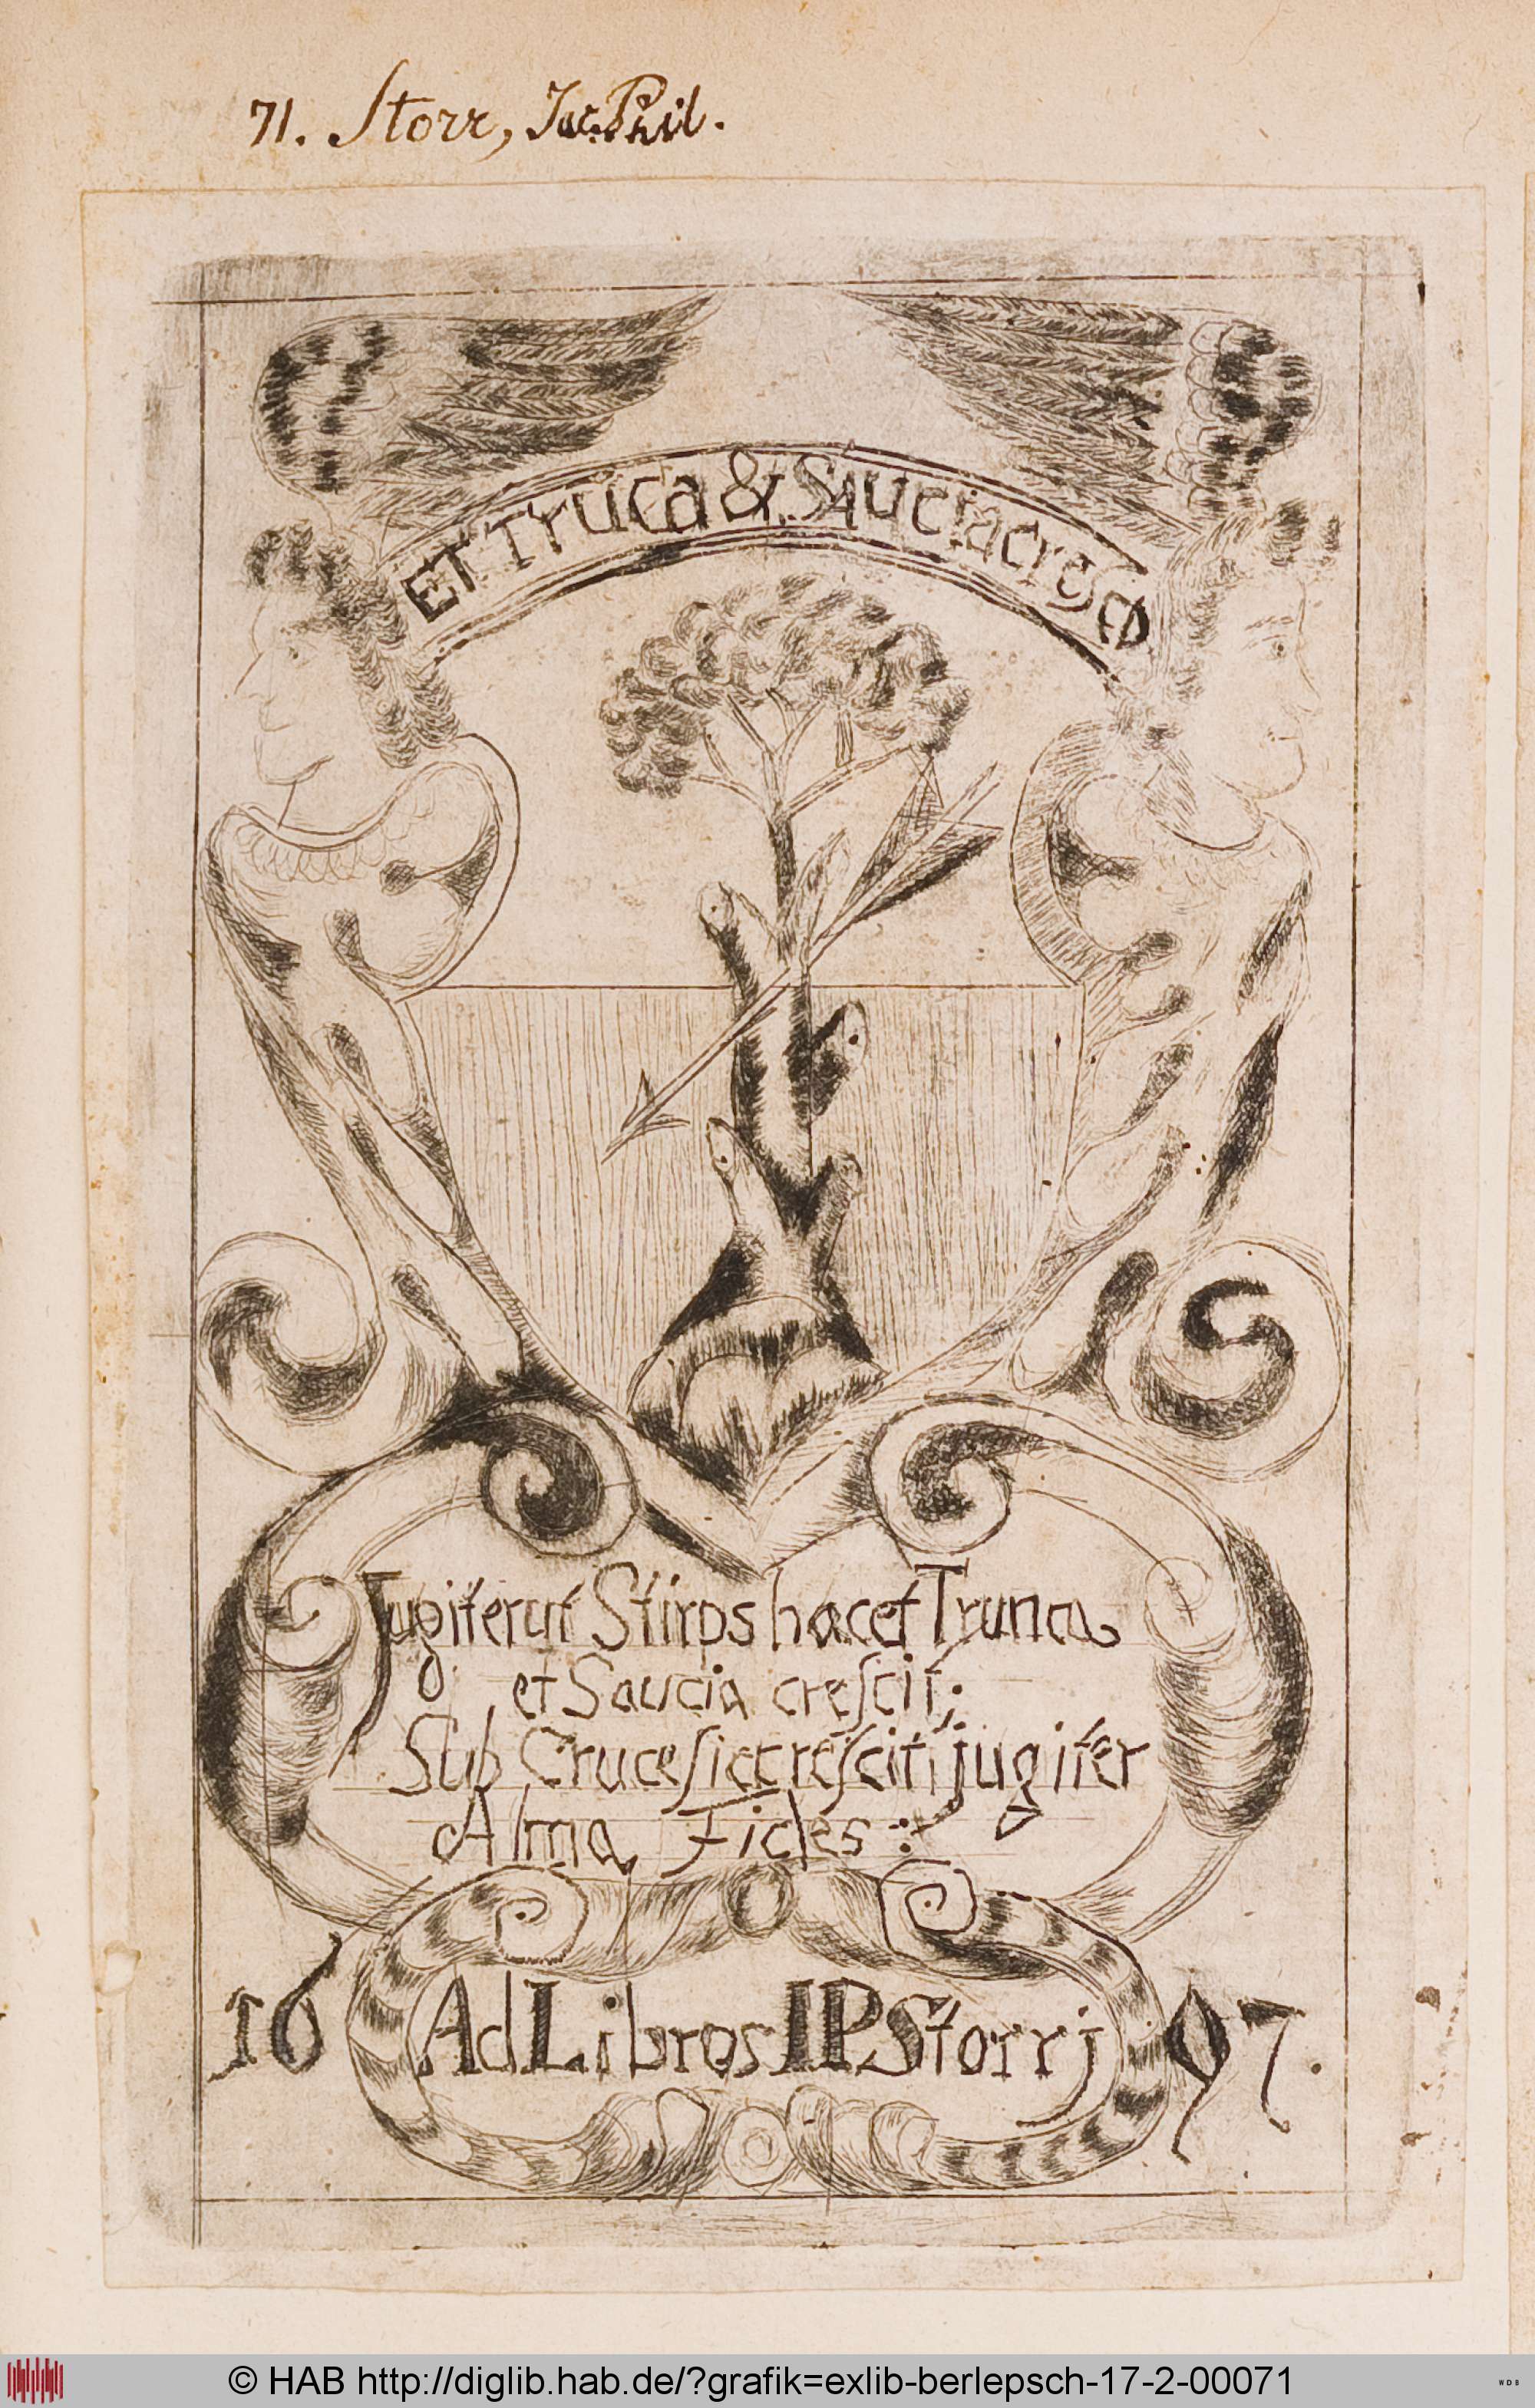 71. Storr, Jac. Phil.
ET Truca & Sauciacresco
Jugiterut Stirps hacet Trunca
et Saucia creſcit;
Sub Cruceſiccreſcit jugiter
Alma Fides:
16 Ad Libros IPStorrj 97.
© HAB http://diglib.hab.de/?grafik=exlib-berlepsch-17-2-00071
WDB